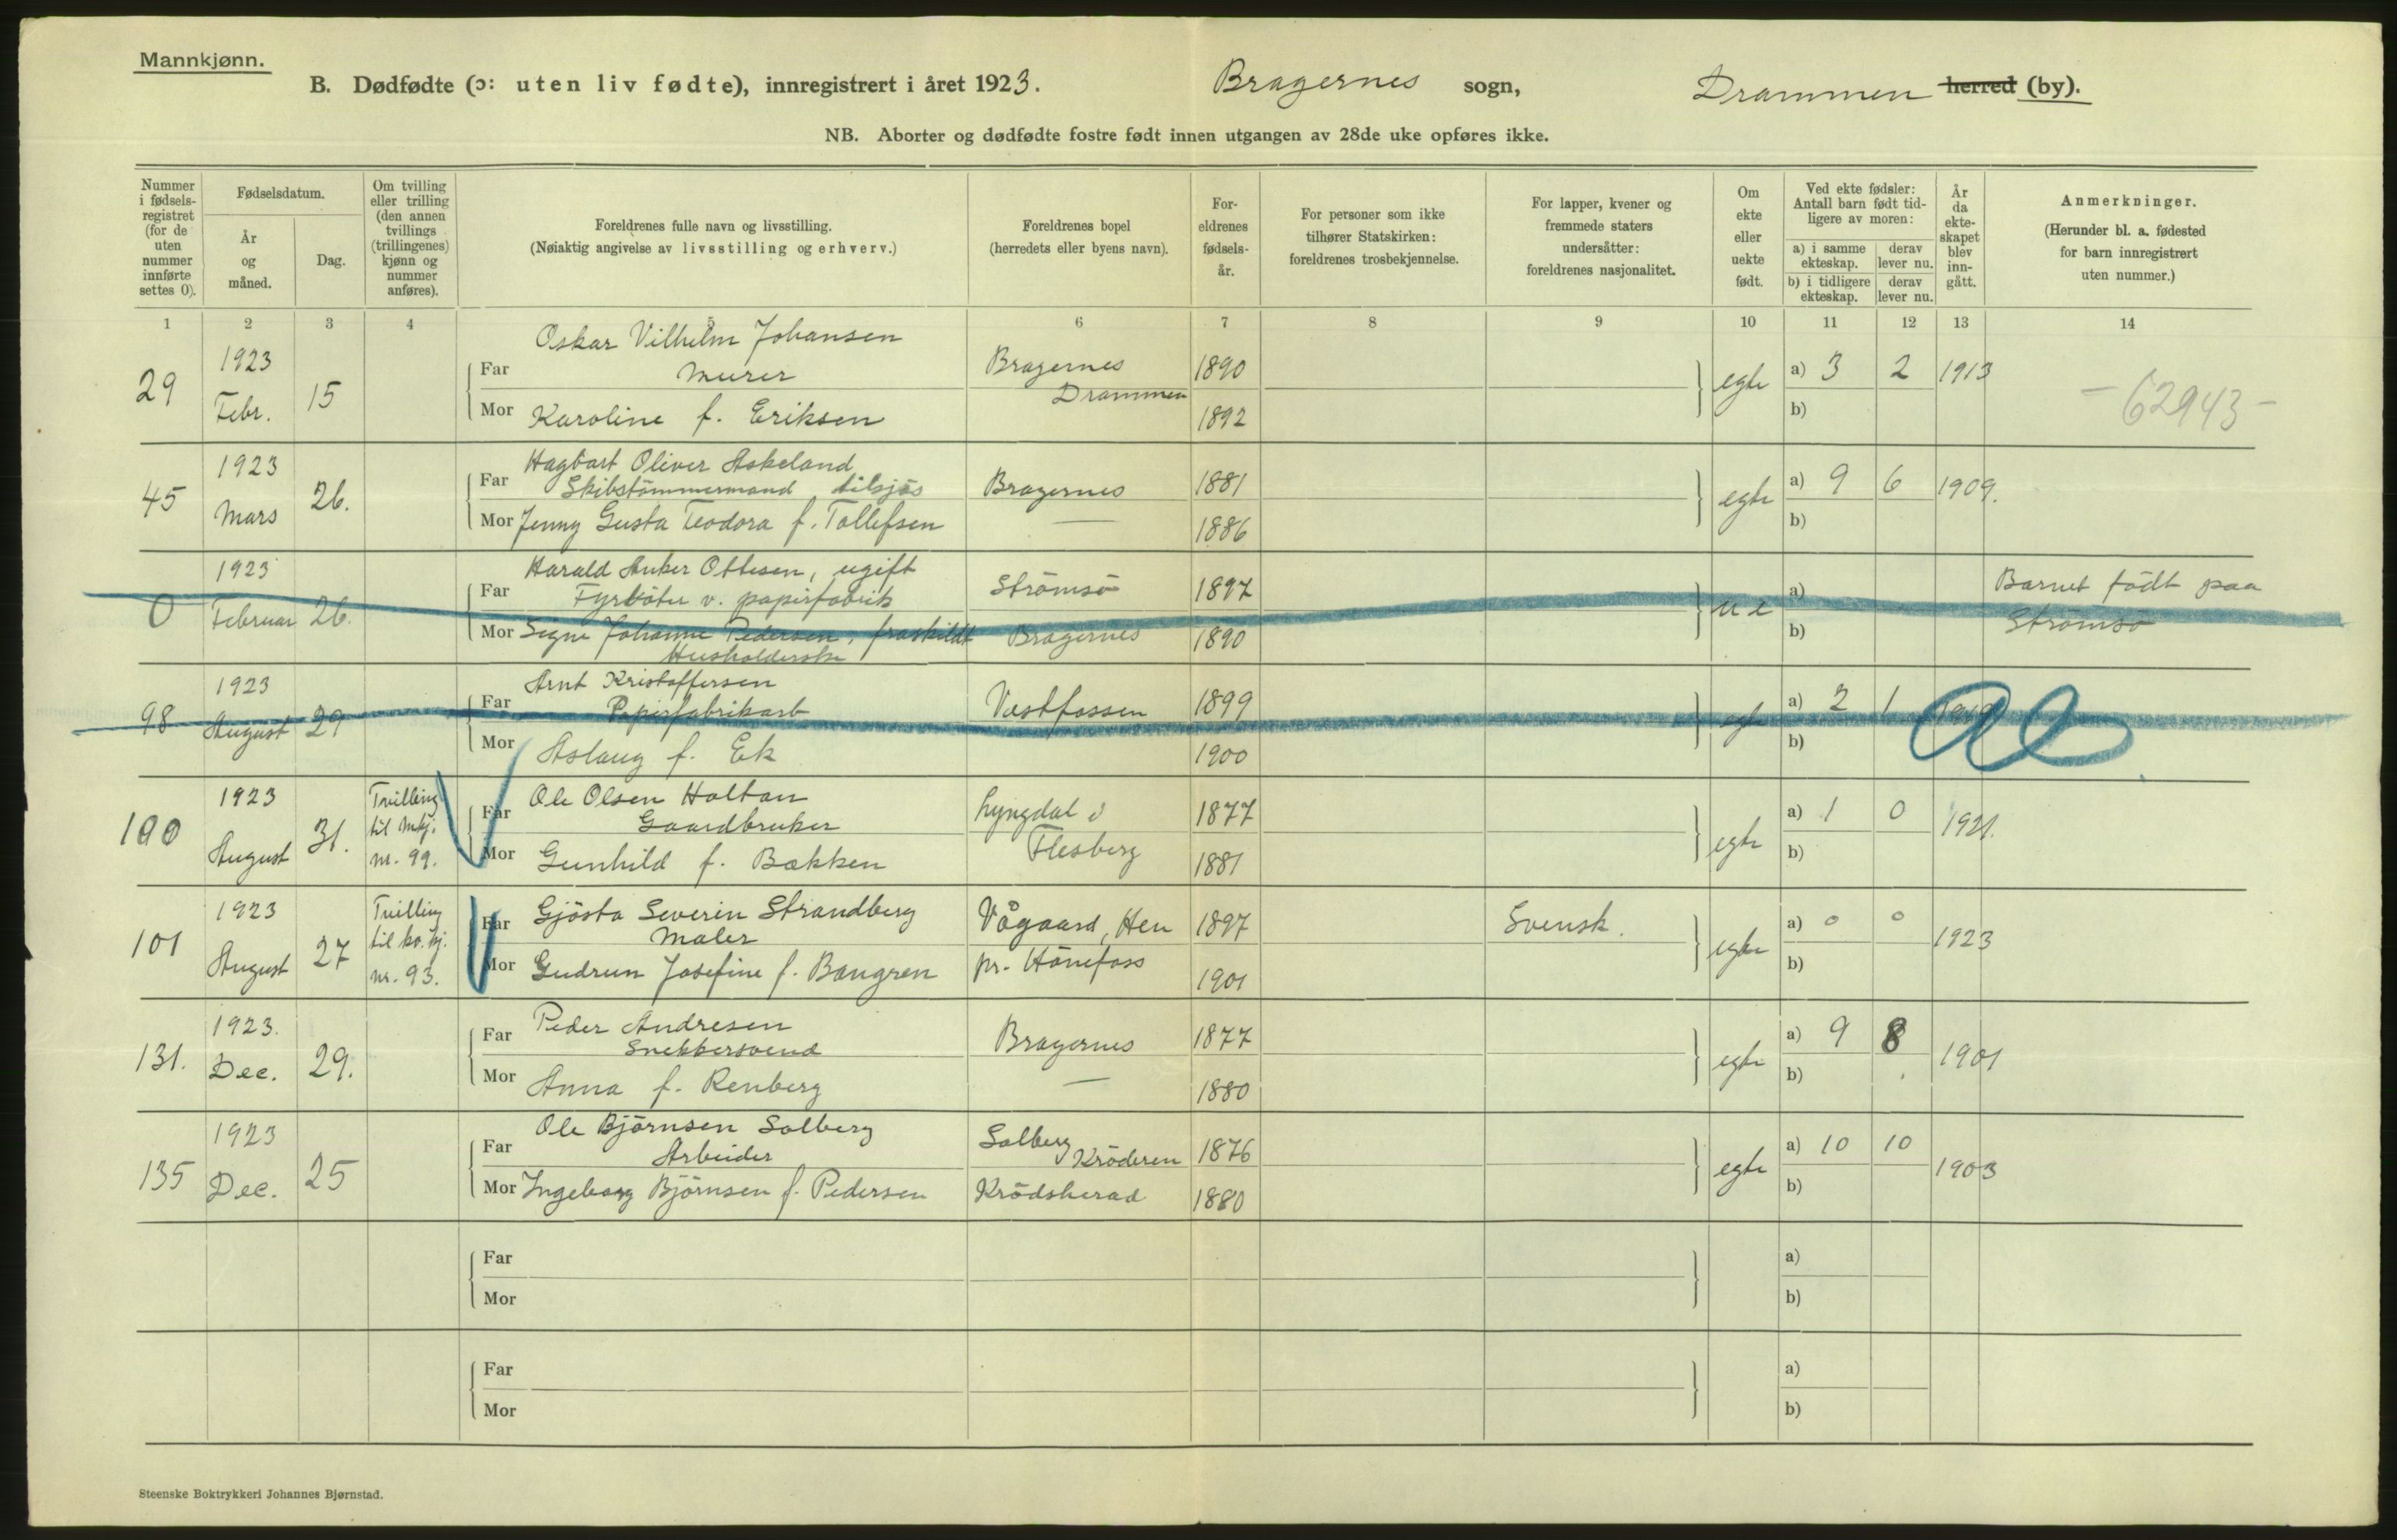 Mannkjønn.
B. Dødfødte (ɔ: uten liv fødte), innregistrert i året 1923. Bragernes sogn, Drammen herred (by).
NB. Aborter og dødfødte fostre født innen utgangen av 28de uke opføres ikke.
Nummer i fødsels-registret (for de uten nummer innførte settes 0).
Fødselsdatum.
År og måned.
Dag.
Om tvilling eller trilling (den annen tvillings (trillingenes) kjønn og nummer anføres).
Foreldrenes fulle navn og livsstilling.
(Nøiaktig angivelse av livsstilling og erhverv.)
Foreldrenes bopel
(herredets eller byens navn).
For-eldrenes fødsels-år.
For personer som ikke tilhører Statskirken: foreldrenes trosbekjennelse.
For lapper, kvener og fremmede staters undersåtter: foreldrenes nasjonalitet.
Om ekte eller uekte født.
Ved ekte fødsler: Antall barn født tid-ligere av moren:
a) i samme ekteskap.
derav lever nu.
b) i tidligere ekteskap.
derav lever nu.
År da ekte-skapet blev inn-gått.
Anmerkninger.
(Herunder bl. a. fødested for barn innregistrert uten nummer.)
1 2 3 4 5 6 7 8 9 10 11 12 13 14
Oskar Vilhelm Johansen
29 1923 Febr. 15 Far Murer Bragernes Drammen 1890 egte a) 3 2 1913 -62943-
Mor Karoline f. Eriksen 1892 b)
Hagbart Oliver Askeland
45 1923 Mars 26. Far Skibstömmermand tilsjøs Bragernes 1881 egte a) 9 6 1909.
Mor Jenny Gusta Teodora f. Tollefsen — 1886 b)
Harald Anker Ottesen, ugift
0 1923 Februar 26. Far Fyrböter v. papirfabrik Strömsö 1897 u e a) Barnet födt paa Strömsö
Mor Signe Johanne Pedersen, fraskildt Bragernes 1890 b)
Husholderske
Arnt Kristoffersen
98 1923 August 29 Far Papirfabrikarb Vestfossen 1899 egte a) 2 1
Mor Aslaug f. Ek 1900 b)
Ole Olsen Holtan
100 1923 August 31. Tvilling til mkj. nr. 99. Far Gaardbruker Lyngdal i Flesberg 1877 egte a) 1 0 1921.
Mor Gunhild f. Bækken 1881 b)
Gjösta Severin Strandberg
101 1923 August 27 Tvilling til kv.kj. nr. 93. Far Maler Vågaard, Hen pr. Hönefoss 1897 Svensk. egte a) 0 0 1923
Mor Gudrun Josefine f. Bangren 1901 b)
Peder Andresen
131. 1923. Dec. 29. Far Snekkersvend Bragernes 1877 egte a) 9 8 1901
Mor Anna f. Renberg — 1880 b)
Ole Björnsen Solberg
135 1923 Dec. 25 Far Arbeider Solberg Kröderen 1876 egte a) 10 10 1903
Mor Ingeborg Björnsen f. Pedersen Krödsherad 1880 b)
Far a)
Mor b)
Far a)
Mor b)
Steenske Boktrykkeri Johannes Bjørnstad.